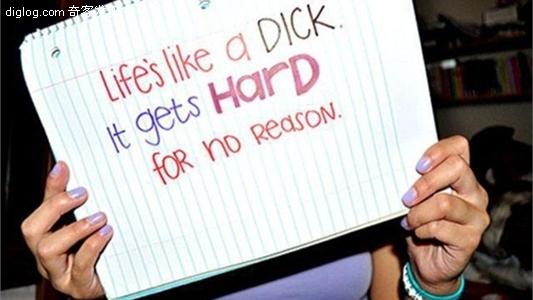 diglog.com 奇客
Life's like a DICK.
It gets HARD
FOR NO REASON.